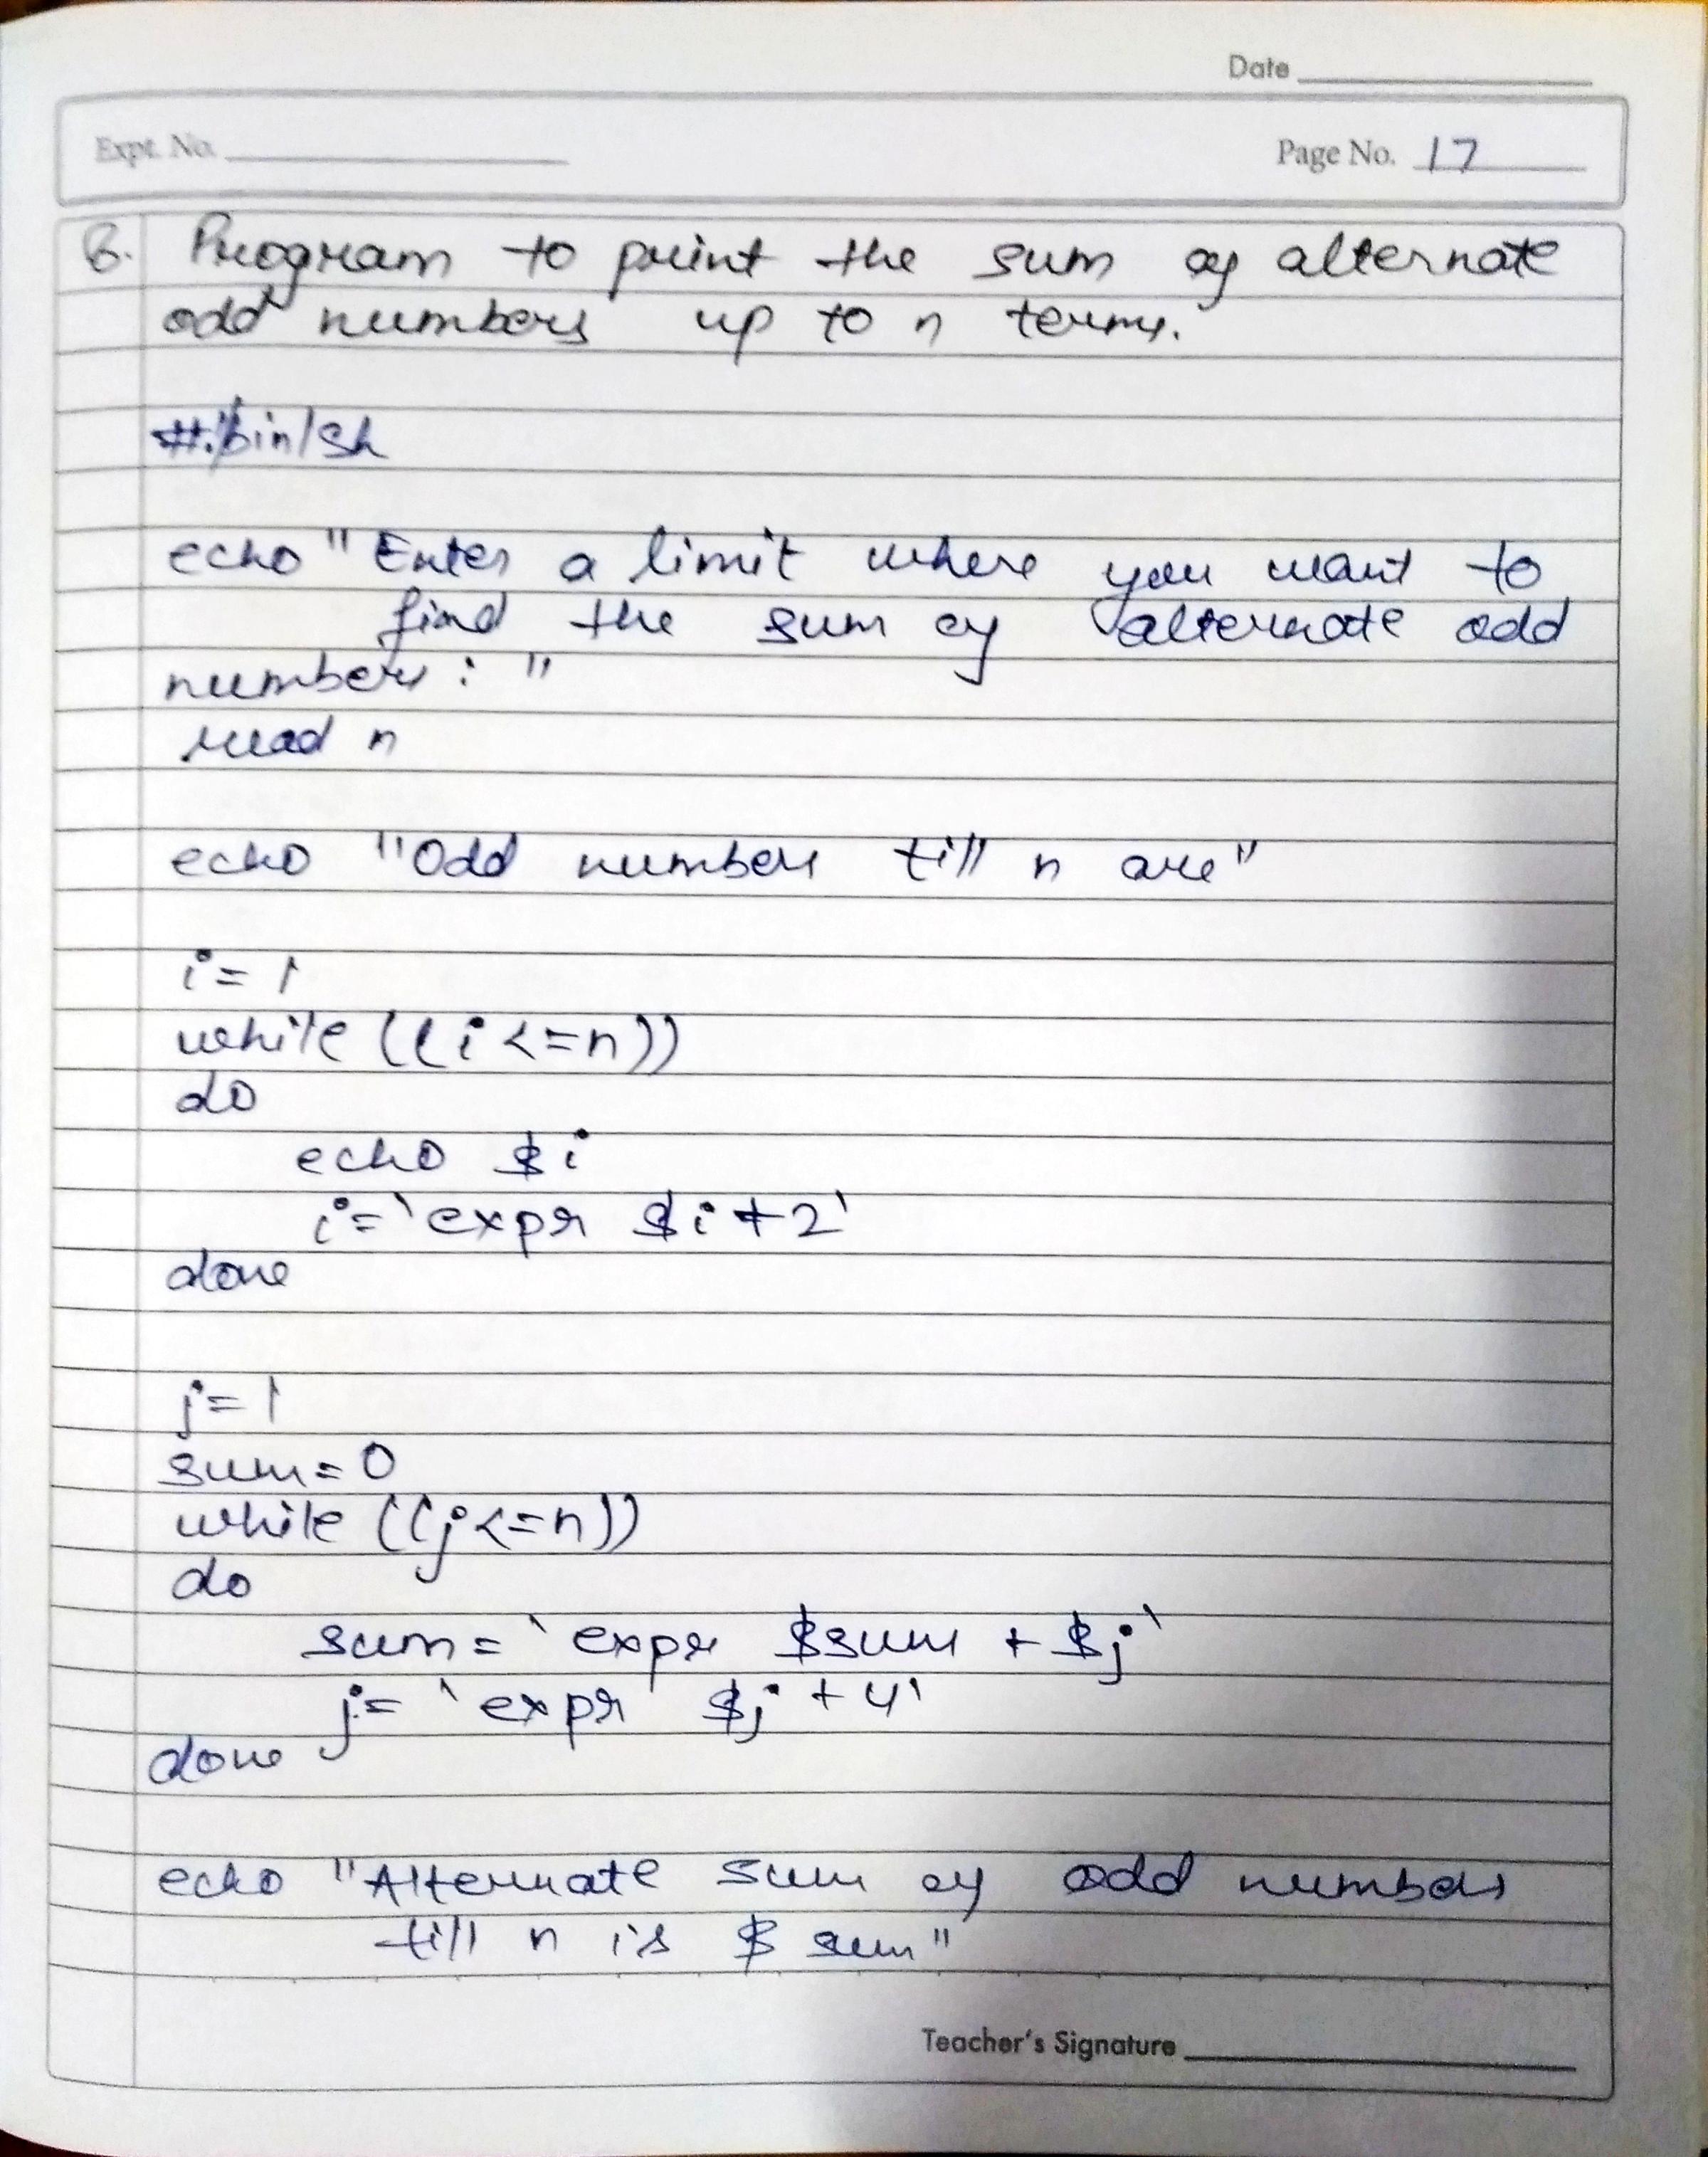 Date
Expt. No.
Page No. 17
6. Program to print the sum of alternate
odd numbers up to n terms.
#!/bin/sh
echo "Enter a limit where you want to
find the sum of alternate odd
numbers : "
read n
echo "Odd numbers till n are"
i=1
while ((i<=n))
do
echo $i
i=`expr $i+2`
done
j=1
sum=0
while ((j<=n))
do
sum=`expr $sum + $j`
j=`expr $j+4`
done
echo "Alternate sum of odd numbers
till n is $ sum"
Teacher's Signature